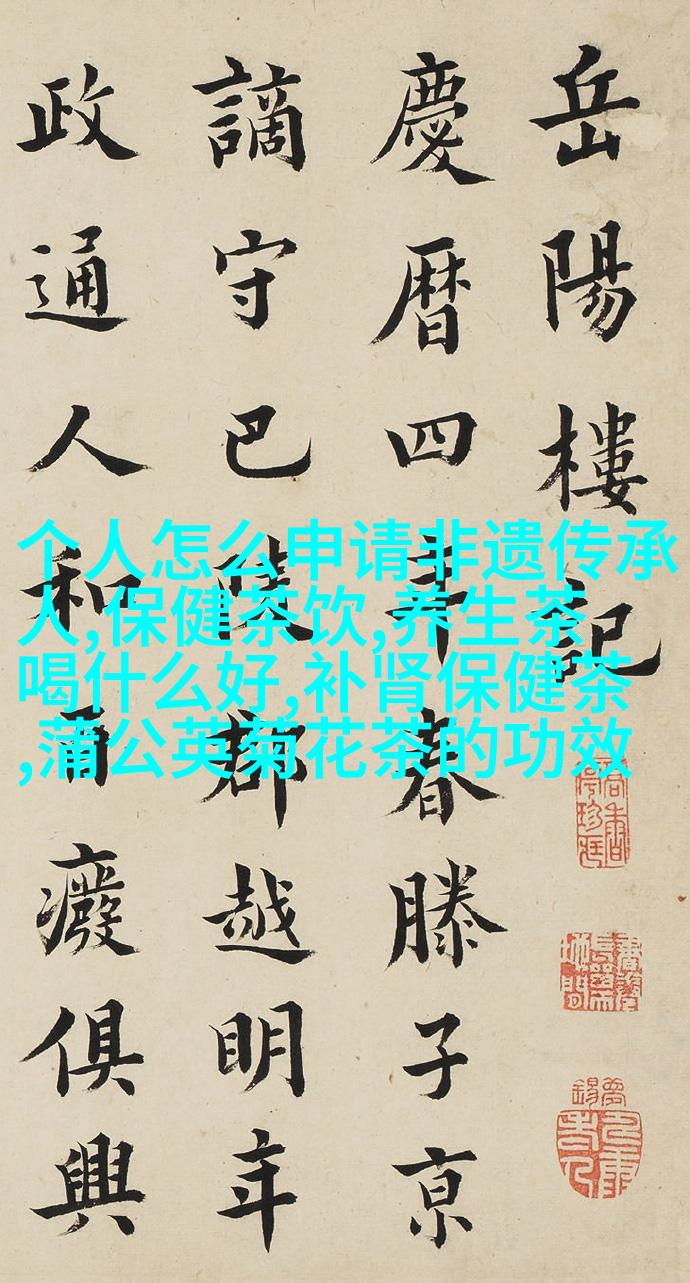 岳陽樓記
慶曆四年春滕子京
謫守巴陵郡越明年
政通人和百癈俱興
个人怎么申请非遗传承
人,保健茶饮,养生茶
喝什么好,补肾保健茶
,蒲公英菊花茶的功效